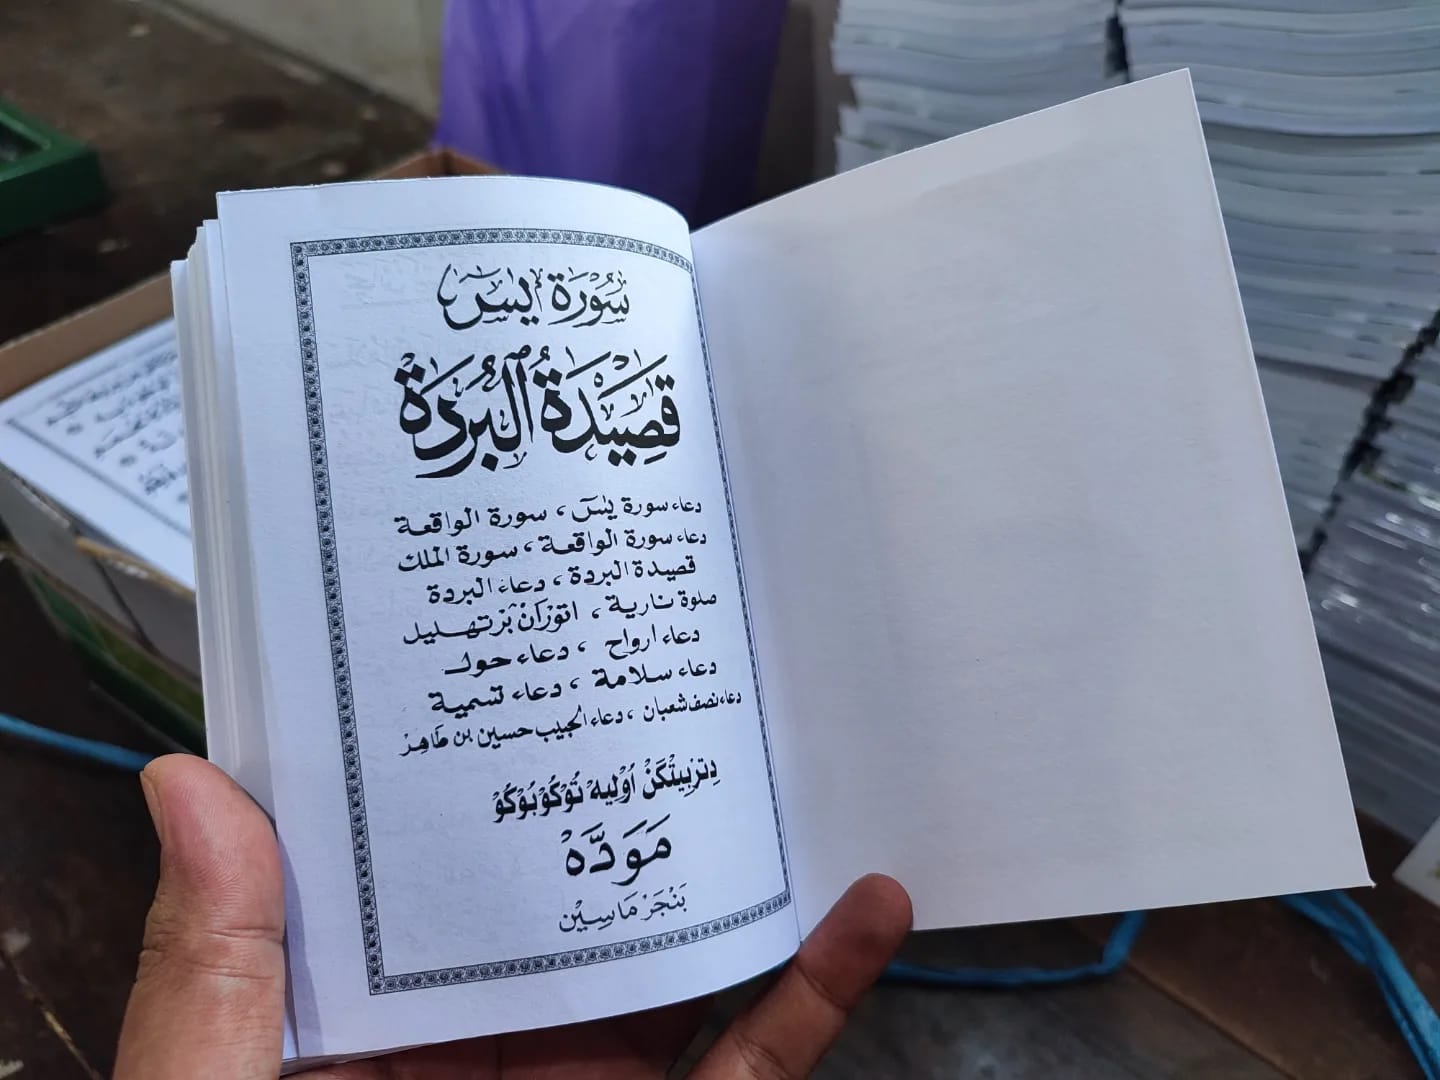 سُورَة يٰسٓ
قَصِيْدَةُ الْبُرْدَةْ
دعاء سورة يٰسٓ ، سورة الواقعة
دعاء سورة الواقعة ، سورة الملك
قصيدة البردة ، دعاء البردة
صلوة نارية ، اتوْرَانْ بَرْتهليل
دعاء ارواح ، دعاء حول
دعاء سلامة ، دعاء تسمية
دعاء نصف شعبان ، دعاء الحبيب حسين بن طَاهِرْ
دِتربِيتْكَنْ اُوْلِيهْ تُوْكُوْ بُوْكُوْ
مَوَدَّهْ
بَنْجَرْ مَاسِيْن